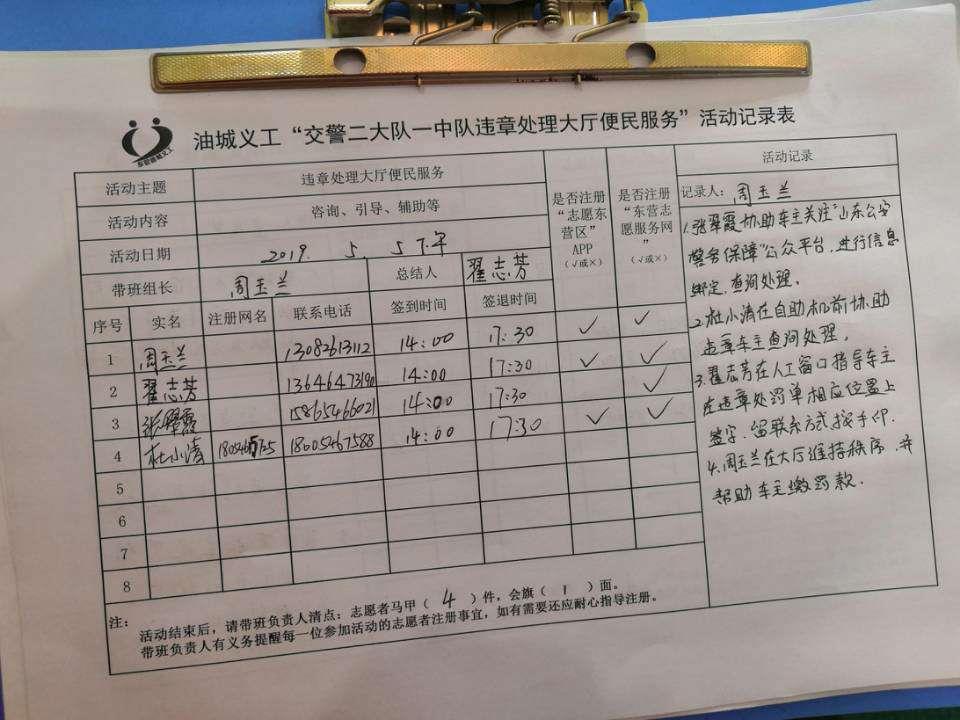 油城义工“交警二大队一中队违章处理大厅便民服务”活动记录表
活动主题 违章处理大厅便民服务
活动内容 咨询、引导、辅助等
活动日期 2019. 5. 5 下午
带班组长 周玉兰 总结人 翟志芳
是否注册“志愿东营区”APP（√或×）
是否注册“东营志愿服务网”（√或×）
序号 实名 注册网名 联系电话 签到时间 签退时间
1 周玉兰 13082613112 14:00 17:30 ✓ ✓
2 翟志芳 13646473190 14:00 17:30 ✓ ✓
3 张翠霞 15865466021 14:00 17:30 ✓
4 杜小清 18005467588 14:00 17:30 ✓ ✓
5
6
7
8
注：
活动结束后，请带班负责人清点：志愿者马甲（ 4 ）件，会旗（ 1 ）面。
带班负责人有义务提醒每一位参加活动的志愿者注册事宜，如有需要还应耐心指导注册。
活动记录
记录人：周玉兰
1.张翠霞协助车主关注“山东公安
警务保障”公众平台，进行信息
绑定，查询处理。
2.杜小清在自助机前协助
违章车主查询处理。
3.翟志芳在人工窗口指导车主
在违章处罚单相应位置上
签字，留联系方式按手印。
4.周玉兰在大厅维持秩序，并
帮助车主缴罚款.